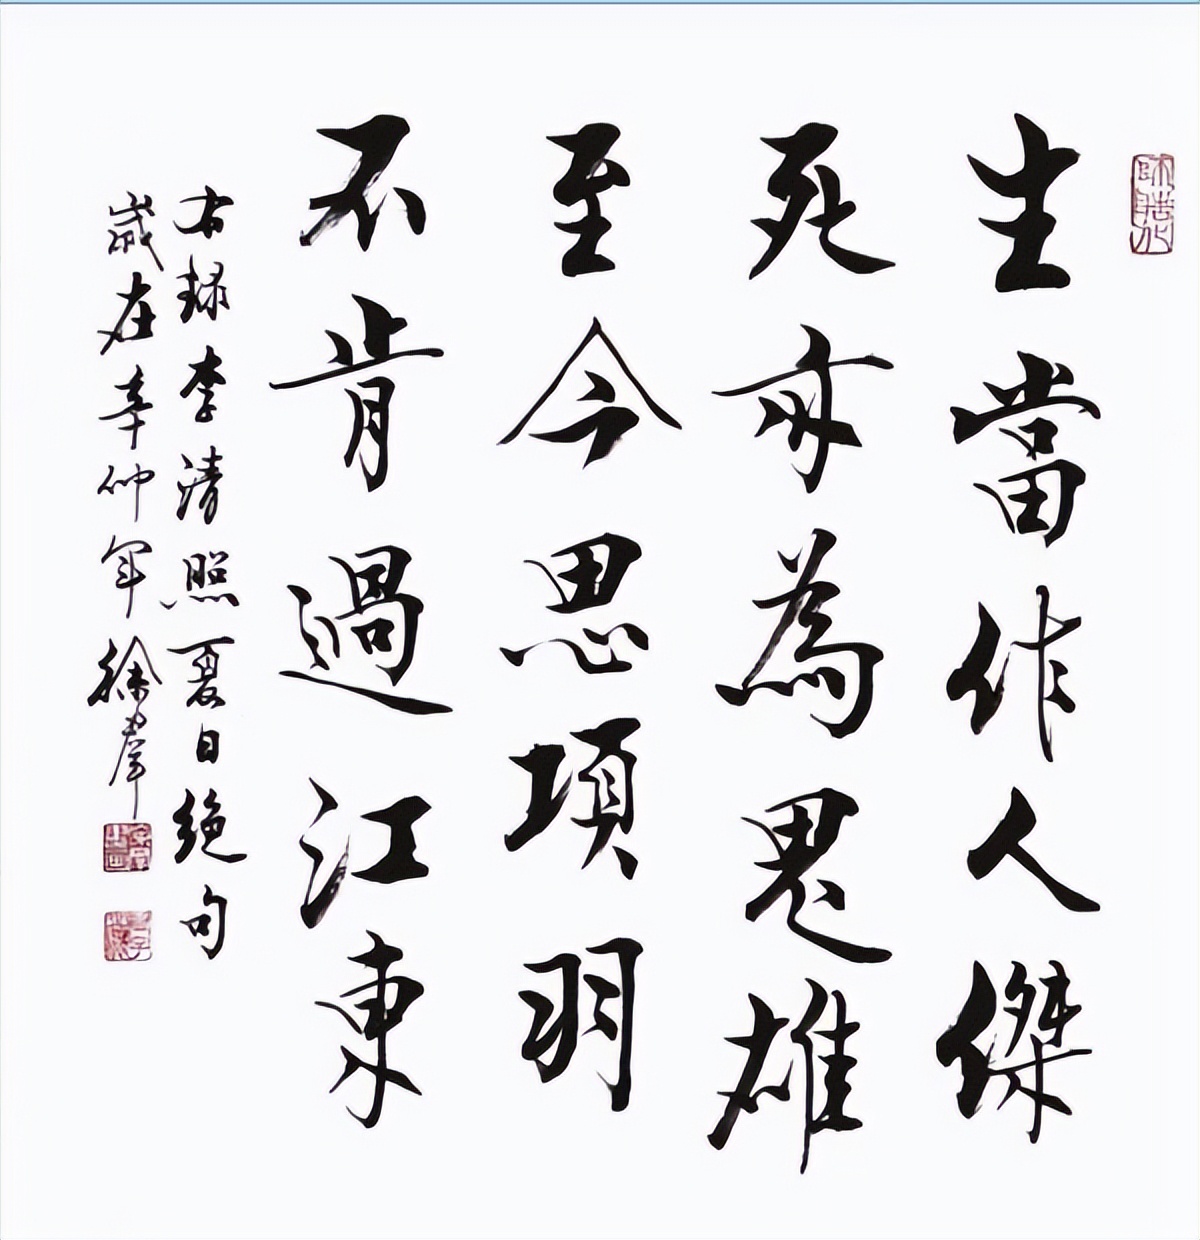 生當作人傑
死亦為鬼雄
至今思項羽
不肯過江東
右録李清照夏日绝句
歲在辛仲年徐